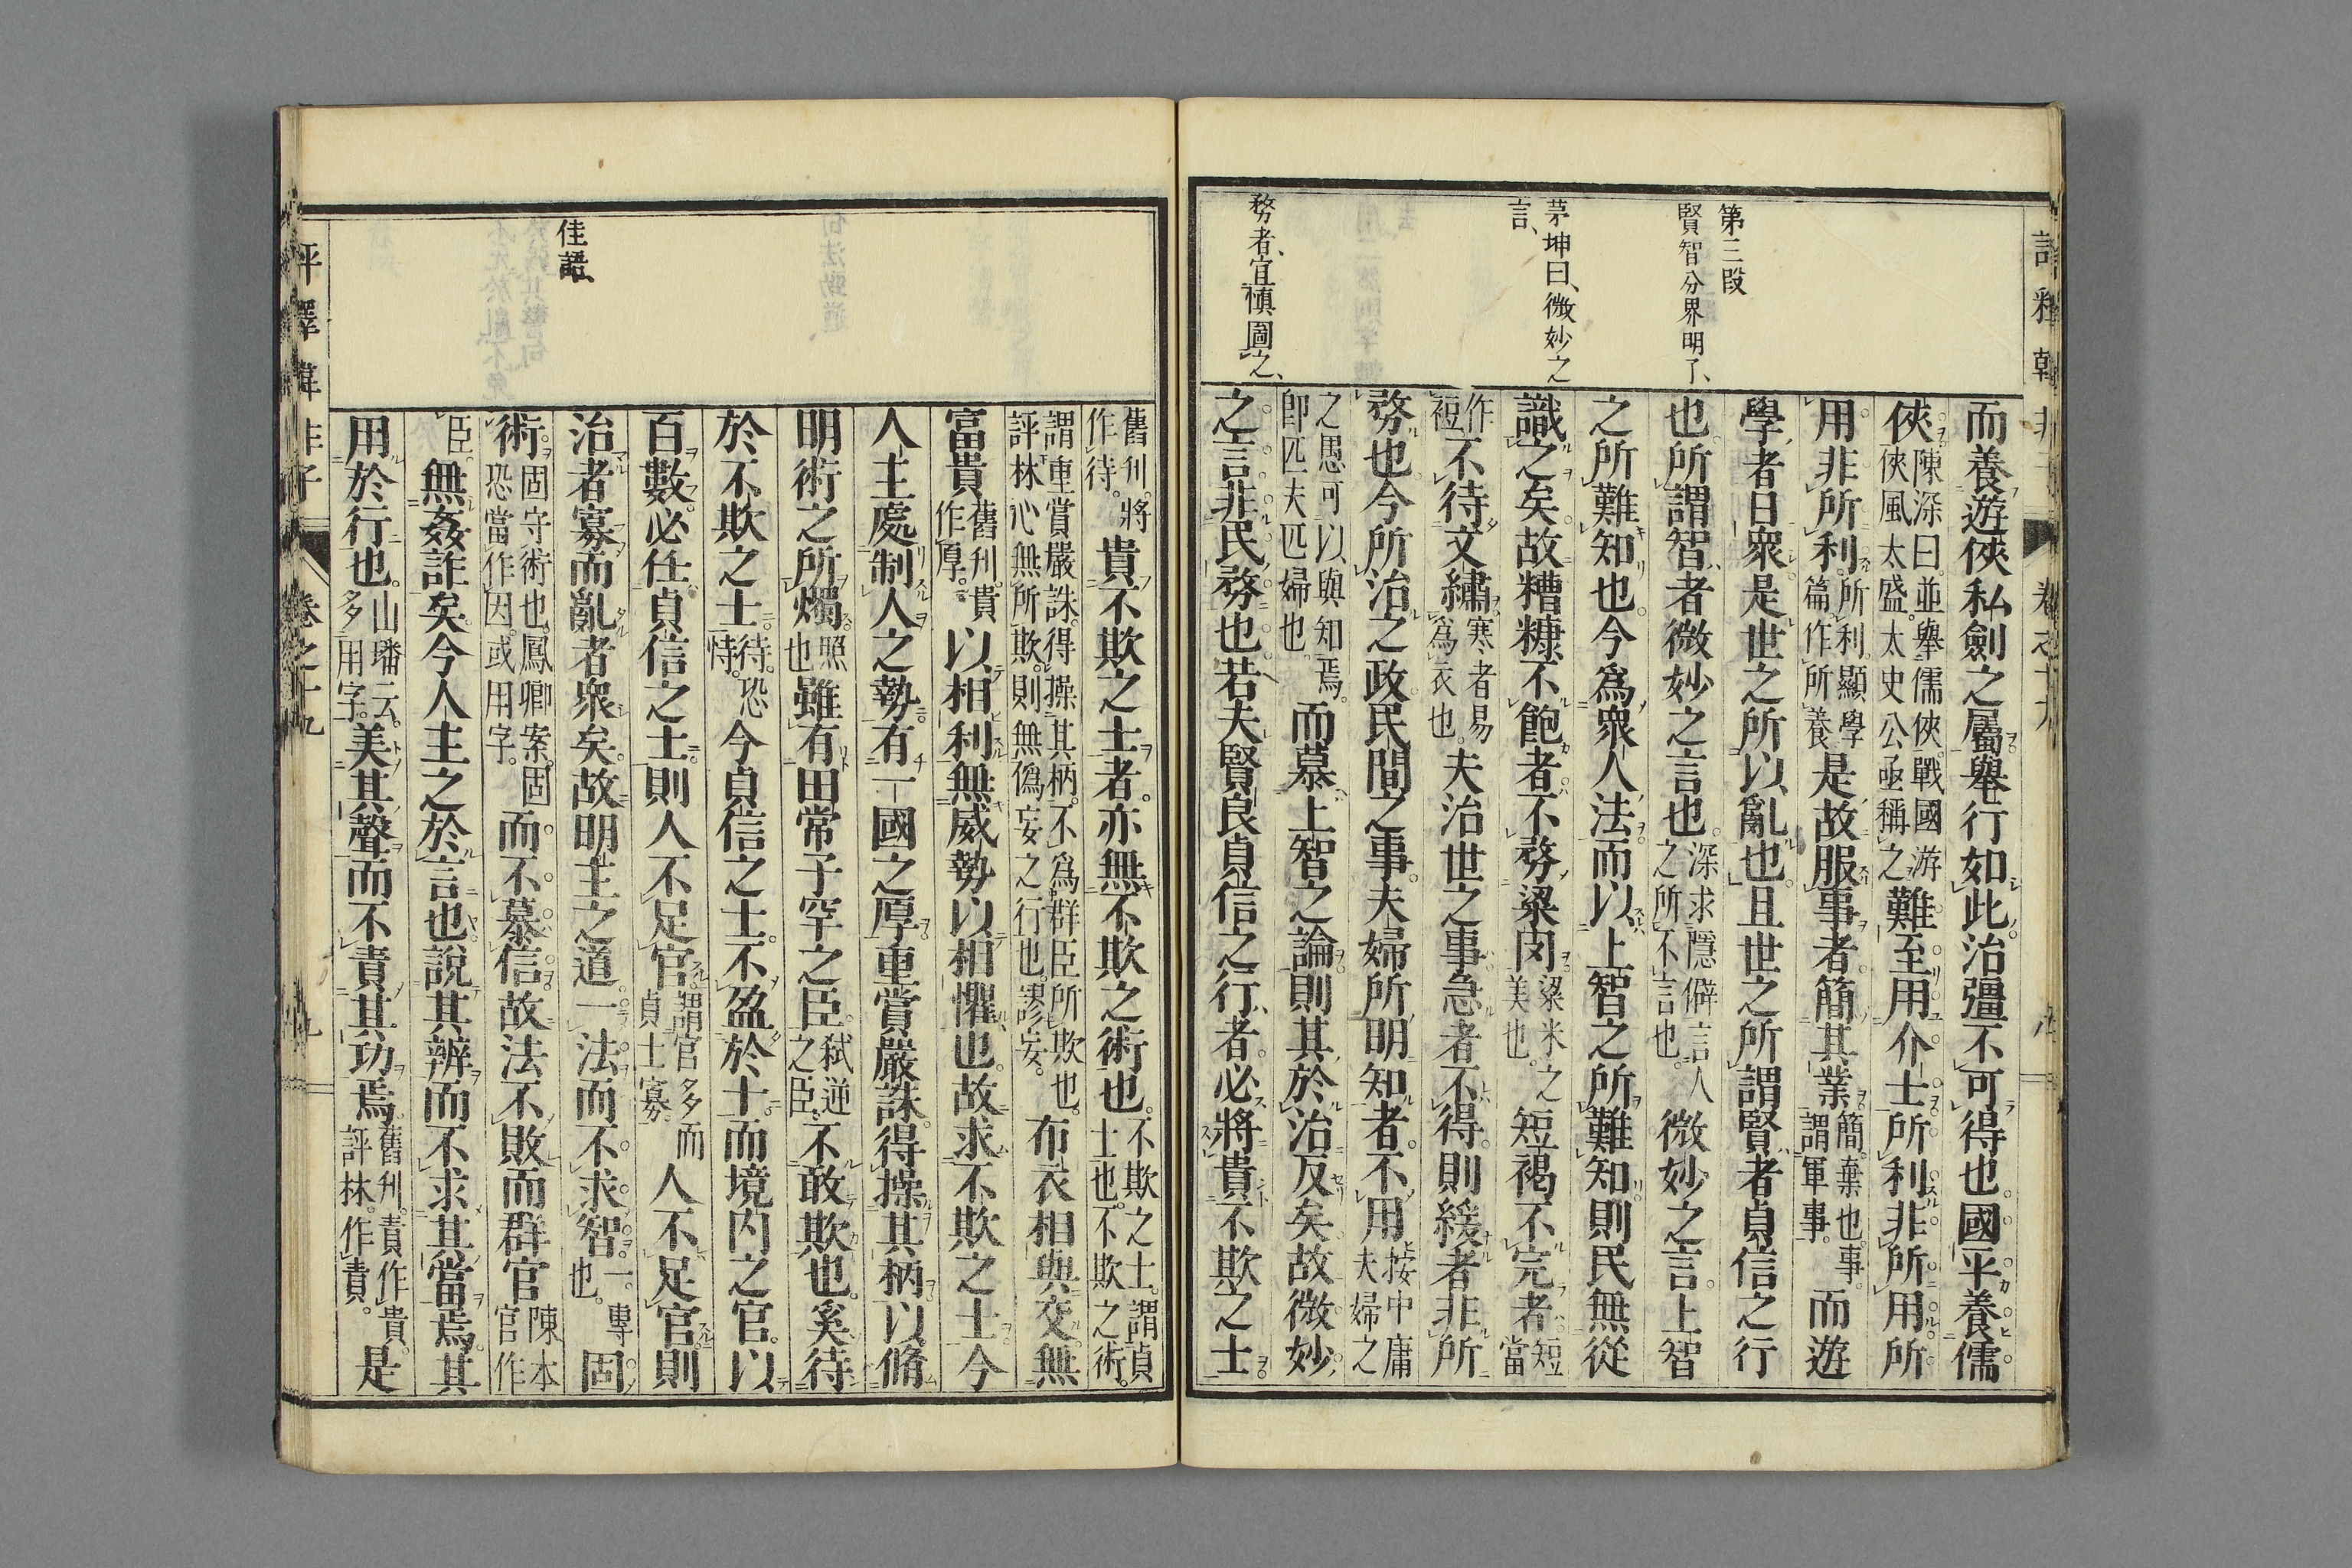 第三段
賢智分界明了、
茅坤曰、微妙之
言、
務者、宜愼圖之、
而養遊俠私劍之屬舉行如此治彊不可得也。國平養儒
俠。陳深曰。並舉儒俠。戰國游俠風太盛。太史公亟稱之難至用介士。所利非所用。所
用非所利。所利。顯學篇。作所養是故服事者簡其業。簡。棄也。事。謂軍事。而遊
學者日衆。是世之所以亂也。且世之所謂賢者貞信之行
也。所謂智者微妙之言也。深求隱僻言人之所不言也。微妙之言。上智
之所難知也。今爲衆人法而以上智之所難知則民無從
識之矣。故糟糠不飽者。不務粱肉粱米之美也。短褐不完者。短當
作裋不待文繡。寒者易爲衣也。夫治世之事。急者不得。則緩者非所
務也。今所治之政。民間之事。夫婦所明知者。不用按中庸夫婦之
之愚可以與知焉。卽匹夫匹婦也。而慕上智之論。則其於治反矣。故微妙
之言。非民務也。若夫賢良貞信之行者。必將貴不欺之士。
評釋韓非子 卷之十九
舊刋。將作待。貴不欺之士者。亦無不欺之術也。不欺之士。謂貞士也。不欺之術。
謂重賞嚴誅。得操其柄。不爲群臣所欺也。評林。心無所欺。則無僞妄之行也。謬妄。布衣相與交。無
富貴舊刋。貴作厚。以相利。無威勢以相懼也。故求不欺之士。今
人主處制人之勢。有一國之厚。重賞嚴誅。得操其柄。以脩
明術之所燭。照也雖有田常子罕之臣。弑逆之臣。不敢欺也。奚待
於不欺之士。待。恐恃。今貞信之士。不盈於十。而境内之官。以
百數。必任貞信之士。則人不足官。謂官多而貞士寡。人不足官。則
治者寡而亂者衆矣。故明主之道。一法而不求智。一。專也。固
術。固守術也。鳳卿案。固恐當作因。或用字。而不慕信。故法不敗而群官陳本官作
臣。無姦詐矣。今人主之於言也。說其辨而不求其當焉。其
用於行也。山璠云。多用字。美其聲而不責其功焉。舊刋。責作貴。評林。作責。是
佳語、
評釋韓非子 卷之十九 九